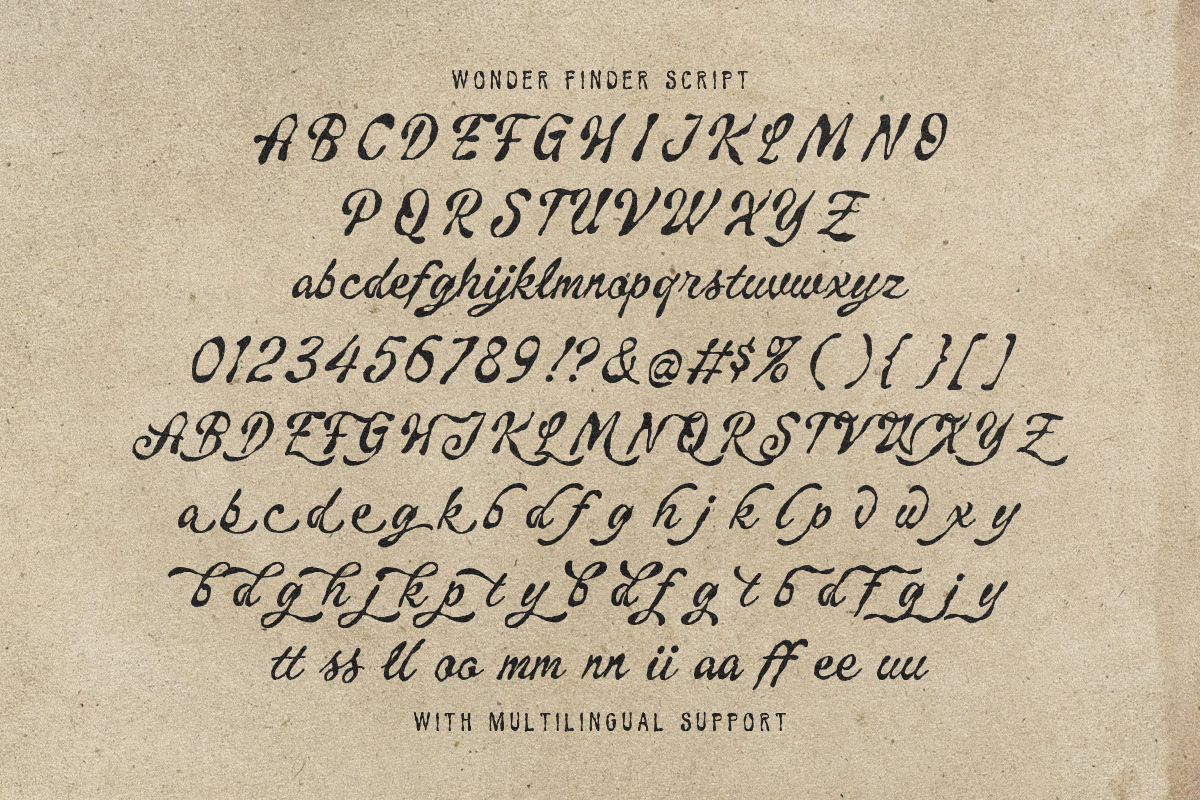 WONDER FINDER SCRIPT
A B C D E F G H I J K L M N O
P Q R S T U V W X Y Z
abcdefghijklmnopqrstuvwxyz
0123456789!?&@#$%(){}[]
A B D E F G H J K L M N Q R S T V W X Y Z
a b c d e g k b d f g h j k l p v w x y
b d g h j k p t y b d f g t b d f g j y
tt ss ll oo mm nn ii aa ff ee uu
WITH MULTILINGUAL SUPPORT